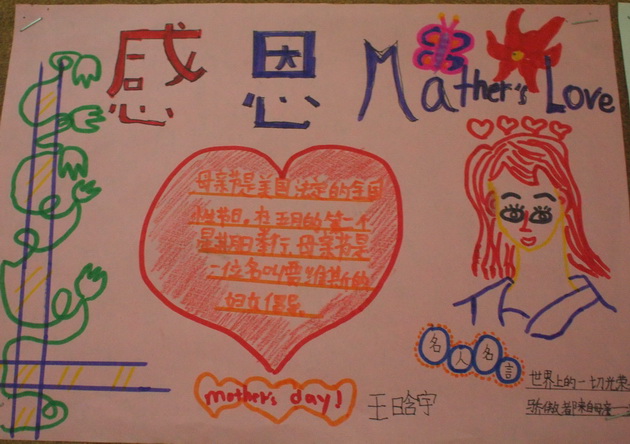 感 恩 Mather's Love
母亲节是美国法定的全国
性节日,在五月的第二个
星期日举行,母亲节是
一位名叫贾维斯的
妇女倡导。
mother's day!
王晗宇
名人名言
世界上的一切光荣
骄傲都来自母亲